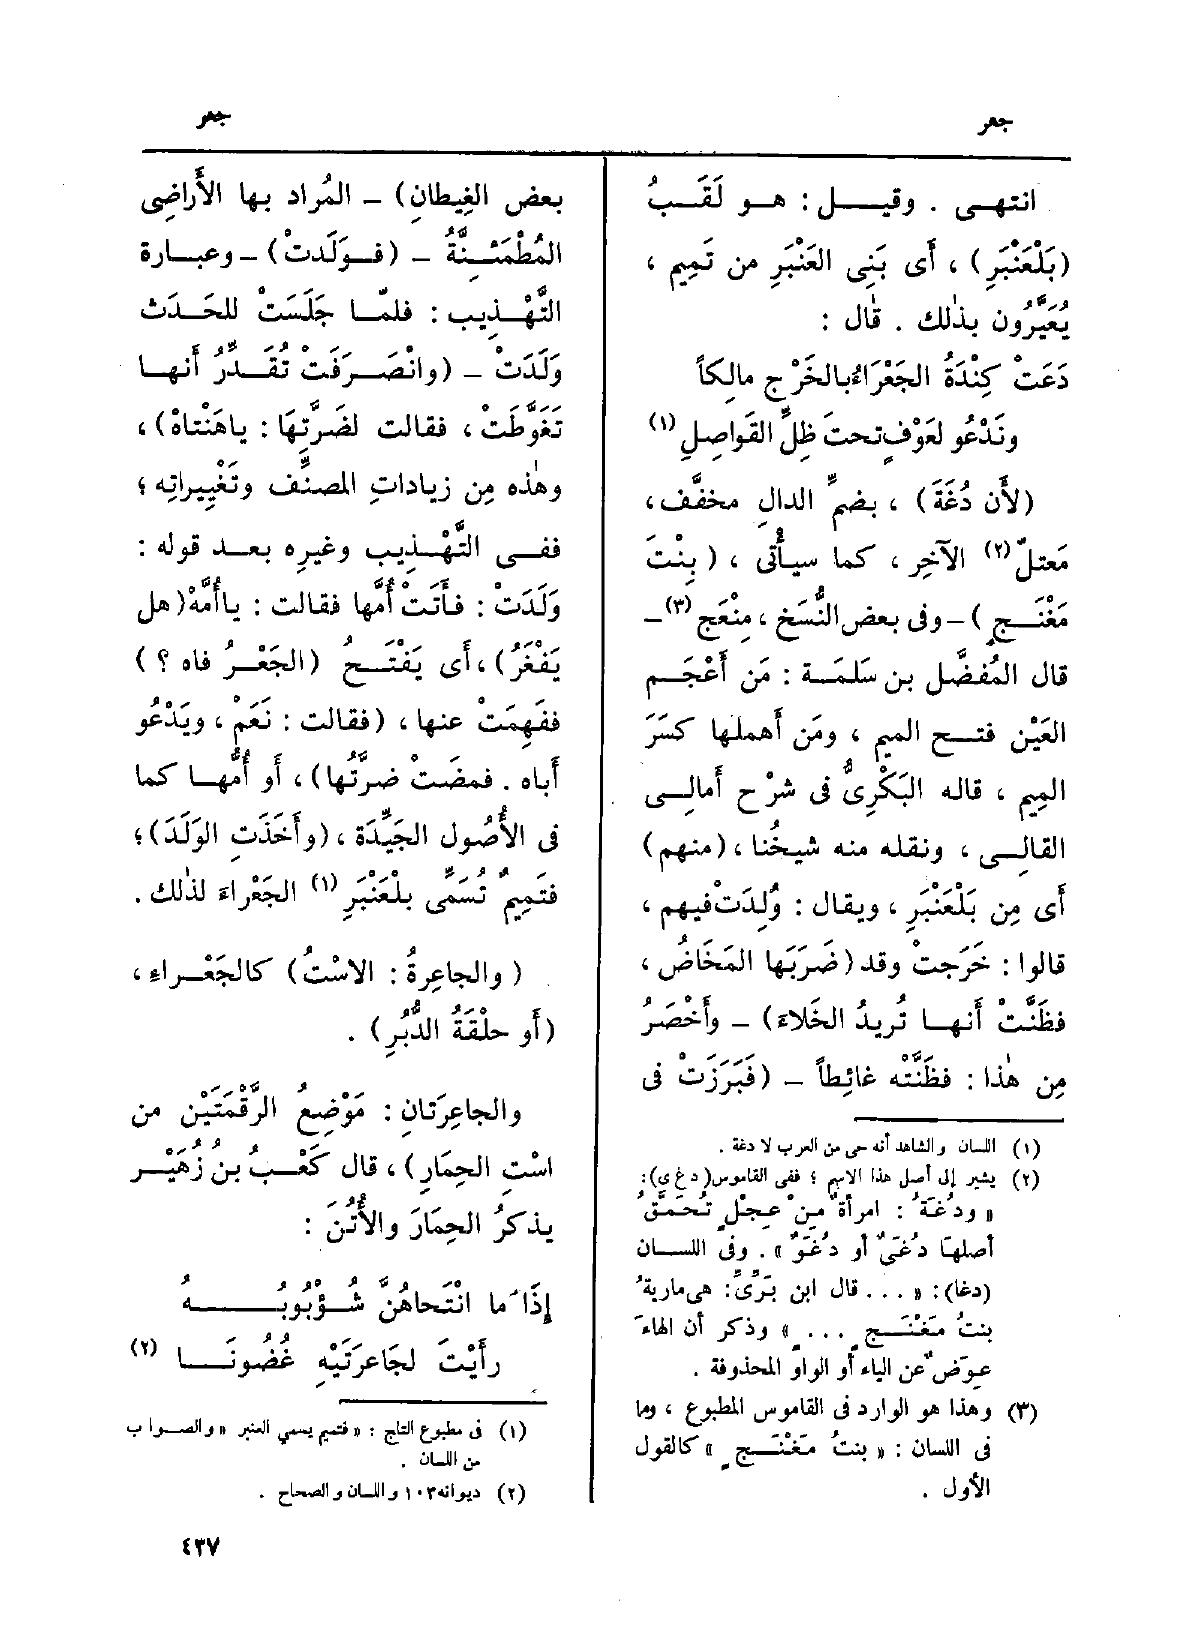 جعر
جعر
انتهى . وقيل : هو لَقَبُ
(بَلْعَنْبَرِ) ، أَى بَنِى العَنْبَرِ من تَمِيمٍ ،
يُعَيَّرُون بذٰلك . قال :
دَعَتْ كِنْدَةُ الجَعْرَاءُ بالخَرْجِ مالِكاً
ونَدْعُو لعَوْفٍ تحتَ ظِلِّ القَواصِلِ (١)
(لأَن دُغَةَ) ، بضمِّ الدالِ مخفَّف ،
مُعتلّ (٢) الآخِرِ ، كما سيأْتى ، (بِنْتَ
مَغْنَجٍ) – وفى بعض النُّسَخ ، مِنْعَج (٣) –
قال المُفضَّل بن سَلَمَة : مَن أَعْجَم
العَيْن فتح الميم ، ومَن أَهملها كَسَرَ
المِيم ، قاله البَكْرِىُّ فى شرْح أَمالِى
القالِى ، ونقله منه شيخُنا ، (منهم)
أَى مِن بَلْعَنْبَرِ ، ويقال : وُلِدَتْ فيهم ،
قالوا : خَرَجتْ وقد (ضَرَبَها المَخَاضُ ،
فظَنَّتْ أَنها تُرِيدُ الخَلاءَ) – وأَخْصَرُ
مِن هٰذا : فظَنَّتْه غائِطاً – (فَبَرَزَتْ فى
(١) اللسان والشاهد أنه حى من العرب لا دغة .
(٢) يشير إلى أصل هذا الاسم ؛ ففى القاموس (دغى) :
« ودُغَةُ : امرأة مِنْ عِجْلٍ تُحَمَّقُ
أصلها دُغَىٌ أو دُغَوٌ » . وفى اللسان
(دغا) : « . . . قال ابن بَرِّىّ : هى مارية ُ
بنتُ مَغْنَجٍ . . . » وذكر أن الهاءَ
عِوَضٌ عن الياء أو الواو المحذوفة .
(٣) وهذا هو الوارد فى القاموس المطبوع ، وما
فى اللسان : « بنتُ مَغْنَجٍ » كالقول
الأول .
بعض الغِيطانِ) – المُراد بها الأَراضِى
المُطْمَئِنَّةُ – (فوَلَدتْ) – وعبارة
التَّهْذِيب : فلمّا جَلَسَتْ للحَدَث
وَلَدَتْ – (وانْصَرَفَتْ تُقَدِّرُ أَنها
تَغَوَّطَتْ ، فقالت لضَرَّتِهَا : ياهَنْتاهْ) ،
وهٰذه مِن زياداتِ المصنِّف وتَغْيِيراتِه ؛
ففى التَّهْذِيب وغيرِه بعد قوله :
وَلَدَتْ : فأَتَتْ أُمَّها فقالت : ياأُمَّهْ (هل
يَفْغَرُ) ، أَى يَفْتَحُ (الجَعْرُ فاه ؟)
ففَهِمَتْ عنها ، (فقالت : نَعَمْ ، ويَدْعُو
أَباه . فمضَتْ ضرَّتُها) ، أَو أُمُّها كما
فى الأُصُول الجَيِّدَة ، (وأَخَذَتِ الوَلَدَ) ؛
فتَمِيمٌ تُسَمِّى بلْعَنْبَرِ (١) الجَعْراءَ لذٰلك .
(والجاعِرةُ : الاسْتُ) كالجَعْراءِ ،
(أَو حلْقَةُ الدُّبُرِ) .
والجاعِرَتانِ : مَوْضِعُ الرَّقْمَتَيْنِ من
اسْتِ الحِمَارِ) ، قال كَعْبُ بنُ زُهَيْر
يذكرُ الحِمَارَ والأُتُنَ :
إِذَا ما انْتَحاهُنَّ شُؤْبُوبُه
رأَيْتَ لجَاعِرَتَيْهِ غُضُونَا (٢)
(١) فى مطبوع التاج : « فتميم يسمي العنبر » والصواب
من اللسان .
(٢) ديوانه ١٠٣ واللسان والصحاح .
٤٣٧